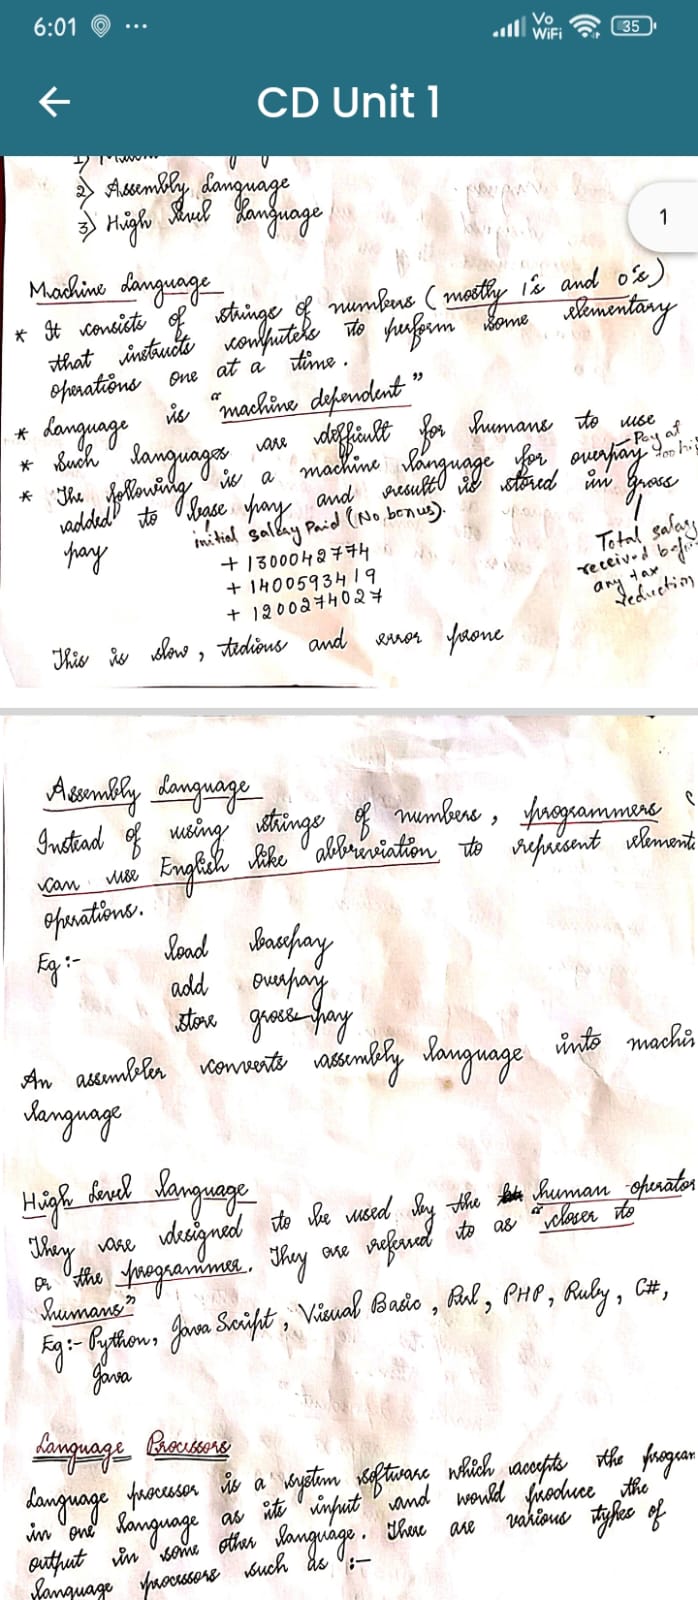 6:01
Vo
WiFi
35
CD Unit 1
1
2) Assembly Language
3) High Level Language
Machine Language
* It consists of strings of numbers (mostly 1's and 0's)
that instructs computers to perform some elementary
operations one at a time.
* Language is "machine dependent"
* Such languages are difficult for humans to use
* The following is a machine language for overpay
Pay at
added to base pay and result is stored in gross
pay
initial Salary Paid (No bonus).
+1300042774
+1400593419
+1200274027
Total salary
received before
any tax
reduction
This is slow, tedious and error prone
Assembly Language
Instead of using strings of numbers, programmers
can use English like abbreviation to represent element
operations.
Eg:- load basepay
add overpay
store grosspay
An assembler converts assembly language into machin
language
High Level language
They are designed to be used by the human operator
or the programmer. They are referred to as "closer to
humans"
Eg:- Python, Java Script, Visual Basic, Perl, PHP, Ruby, C#,
Java
Language Processors
Language processor is a system software which accepts the program
in one language as its input and would produce the
output in some other language. There are various types of
language processors such as :-